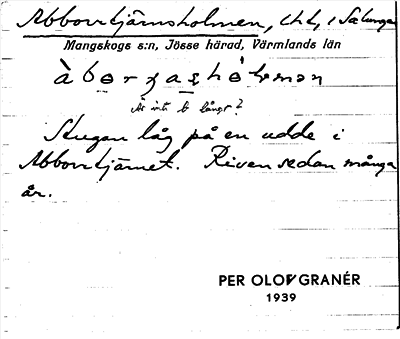 Abborrtjärnsholmen, lht, i Salunga
Mangskogs s:n, Jösse härad, Värmlands län
Är inte b långt?
Stugan låg på en udde i
Abborrtjärnet. Riven sedan många
år.
PER OLOF GRANÉR
1939